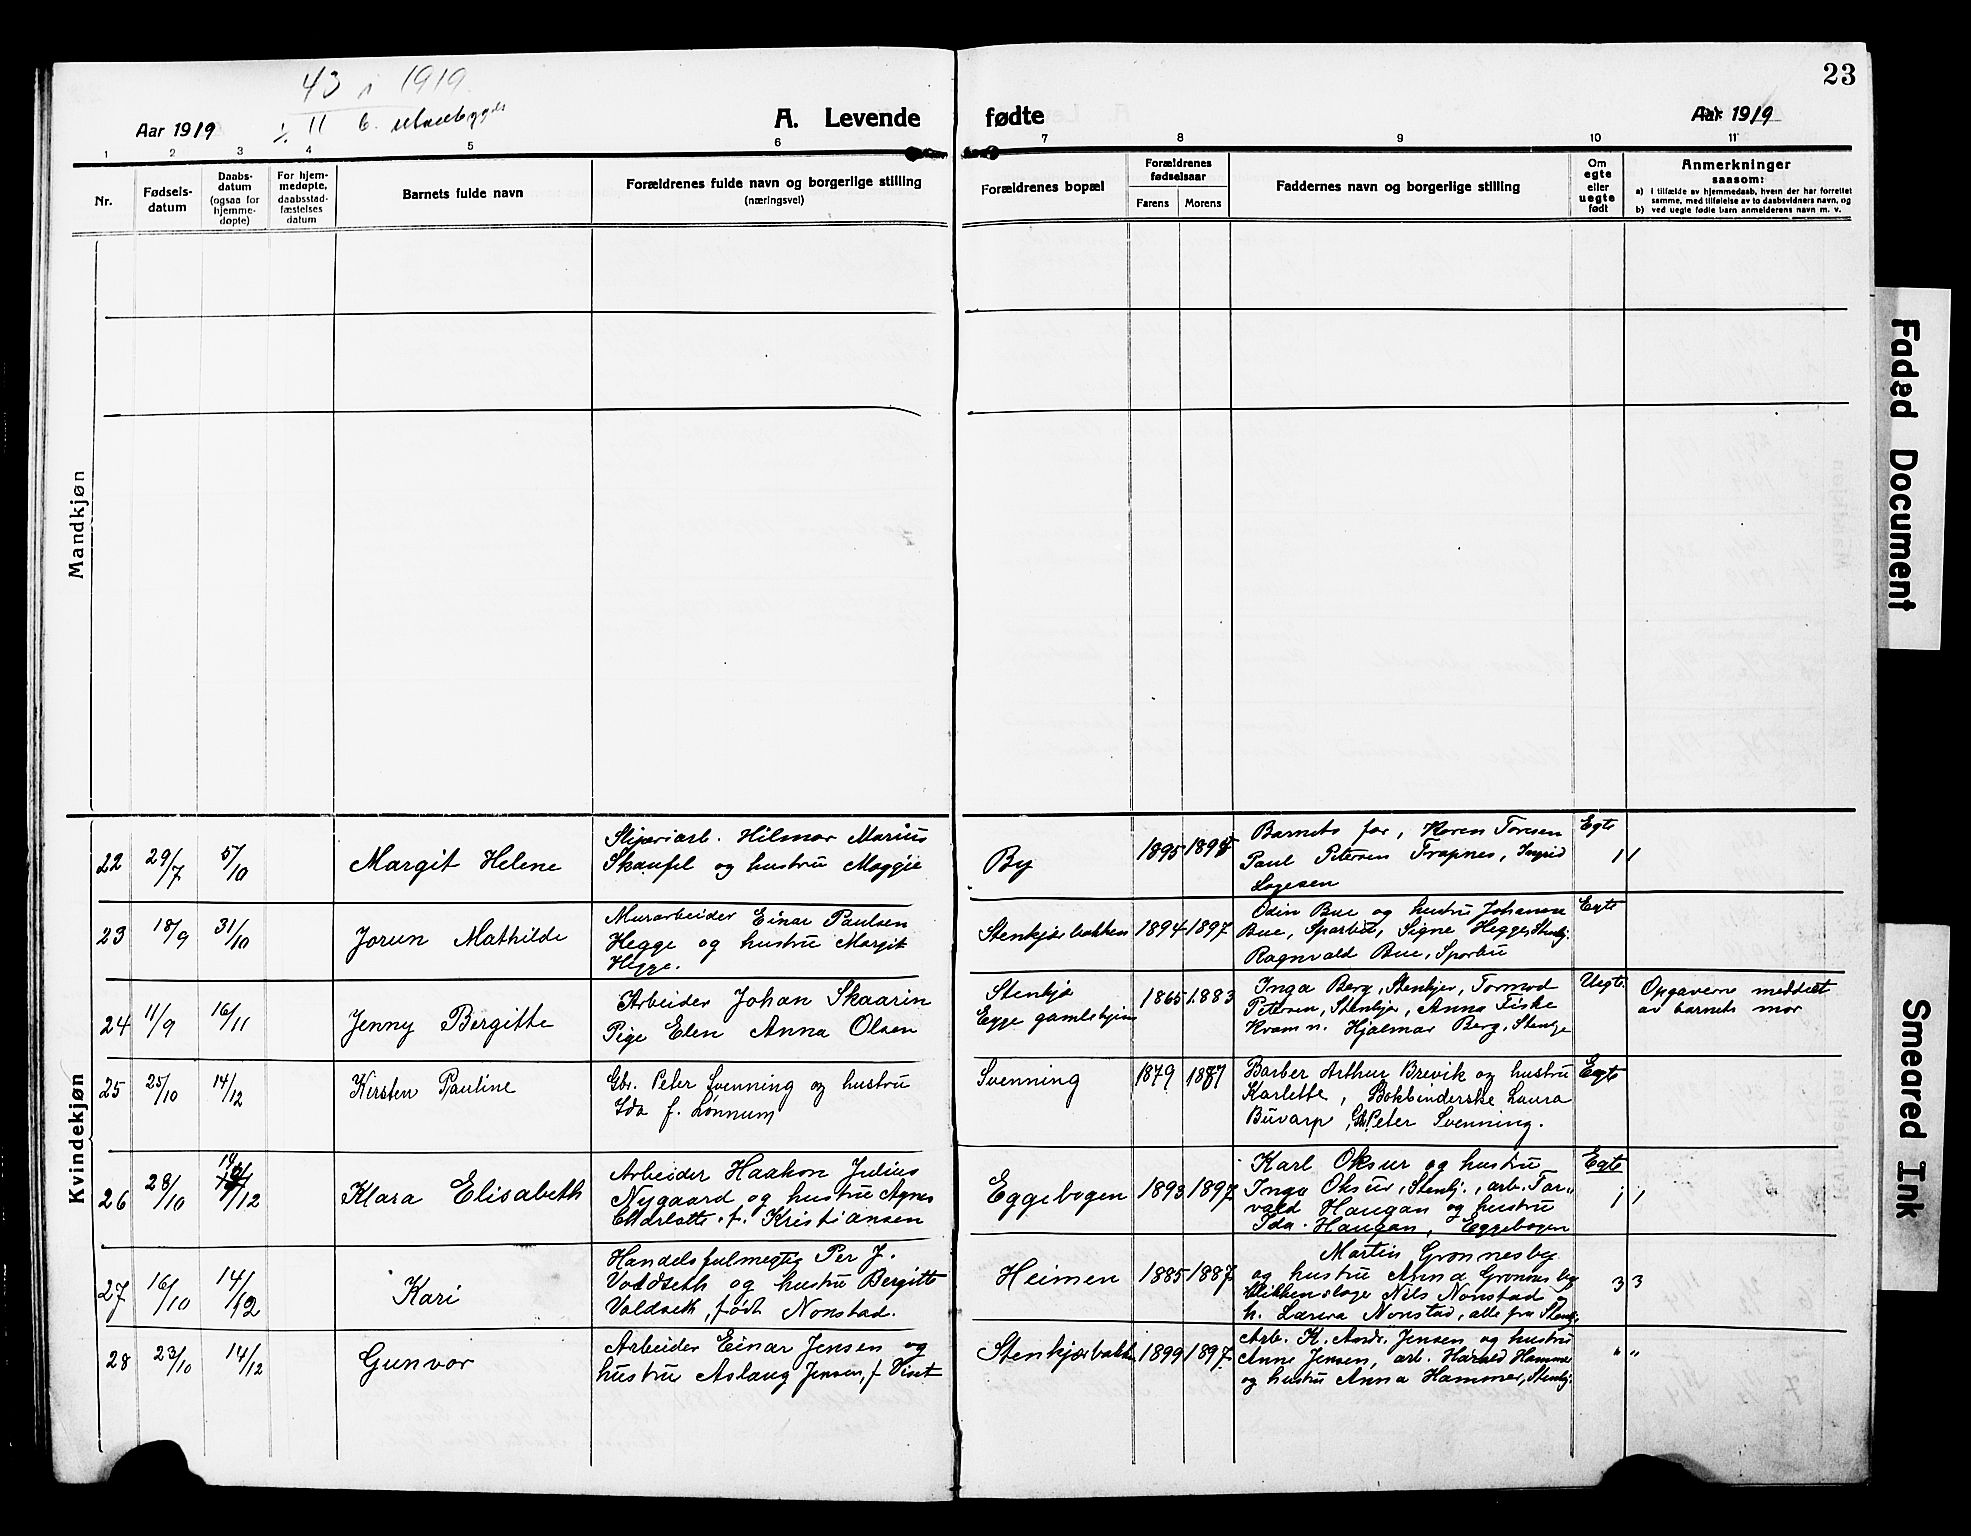 43 i 1919.
Aar 1919
11 b. utenbygds
A. Levende fødte
Aar 1919
23
1 2 3 4 5 6 7 8 9 10 11
Nr.
Fødsels-
datum
Daabs-
datum
(ogsaa for
hjemme-
døpte)
For hjem-
medøpte,
daabsstad-
fæstelses
datum
Barnets fulde navn
Forældrenes fulde navn og borgerlige stilling
(næringsvei)
Forældrenes bopæl
Forældrenes
fødselsaar
Farens Morens
Faddernes navn og borgerlige stilling
Om
egte
eller
uegte
født
Anmerkninger
saasom:
a) I tilfælde av hjemmedaab, hvem der har forrettet
samme, med tilføielse av to daabsvidners navn, og
b) ved uegte fødte barn anmelderens navn m. v.
Mandkjøn
Kvindekjøn
22 29/7 5/10
Margit Helene
Sliperiarb. Hilmar Marius
Skaufel og hustru Maggie
By
1895 1895
Barnets far, Karen Toresen
Paul Petersen Trapnes, Ingrid
Lagesen
Egte
1 1
23 18/9 31/10
Jorun Mathilde
Murarbeider Einar Paulsen
Hegge og hustru Margit
Hegge.
Stenkjærbakken
1894 1897
Odin Bue og hustru Johanna
Bue, Sparbu, Signe Hegge, Stenkj.
Ragnvald Bue, Sparbu
Egte
24 11/9 16/11
Jenny Bergitte
Arbeider Johan Skaarin
Pige Elen Anna Olsen
Stenkjæ
Egge gamlehjem
1865 1883
Inga Berg, Stenkjer, Tormod
Petersen, Stenkjer, Anna Fiske
Kvam n. Hjalmar Berg, Stenkje
Uegte.
Opgaverne meddelt
av barnets mor
25 25/10 14/12
Kirsten Pauline
Gbr. Peter Svenning og hustru
Ida f. Lønnum
Svenning
1879 1887
Barber Arthur Brevik og hustru
Karlette, Bokbinderske Laura
Buvarp, Gb. Peter Svenning.
Egte
26 28/10 14/12
Klara Elisabeth
Arbeider Haakon Julius
Nygaard og hustru Agnes
Charlotte f. Kristiansen
Eggebogen
1893 1897
Karl Oksur og hustru
Inga Oksur, Stenkj., arb. Tor-
vald Haugan og hustru
Ida Haugan, Eggebogen
Egte
1 1
27 16/10 14/12
Kari
Handelsfulmegtig Per J.
Valdseth og hustru Bergitte
Valdseth, født Nonstad.
Heimen
1885 1887
Martin Grønnesby
og hustru Anna Grønnesby
Blikkenslager Nils Nonstad og
h. Laura Nonstad, alle fra Stenkj.
3 3
28 23/10 14/12
Gunvor
Arbeider Einar Jensen og
hustru Aslaug Jensen, f Vist
Stenkjærbakken
1899 1897
Arb. K. Andr. Jensen og hustru
Anne Jensen, arb. Harald Hammer
og hustru Anna Hammer, Stenkj.
" "
Faded Document
Smeared Ink